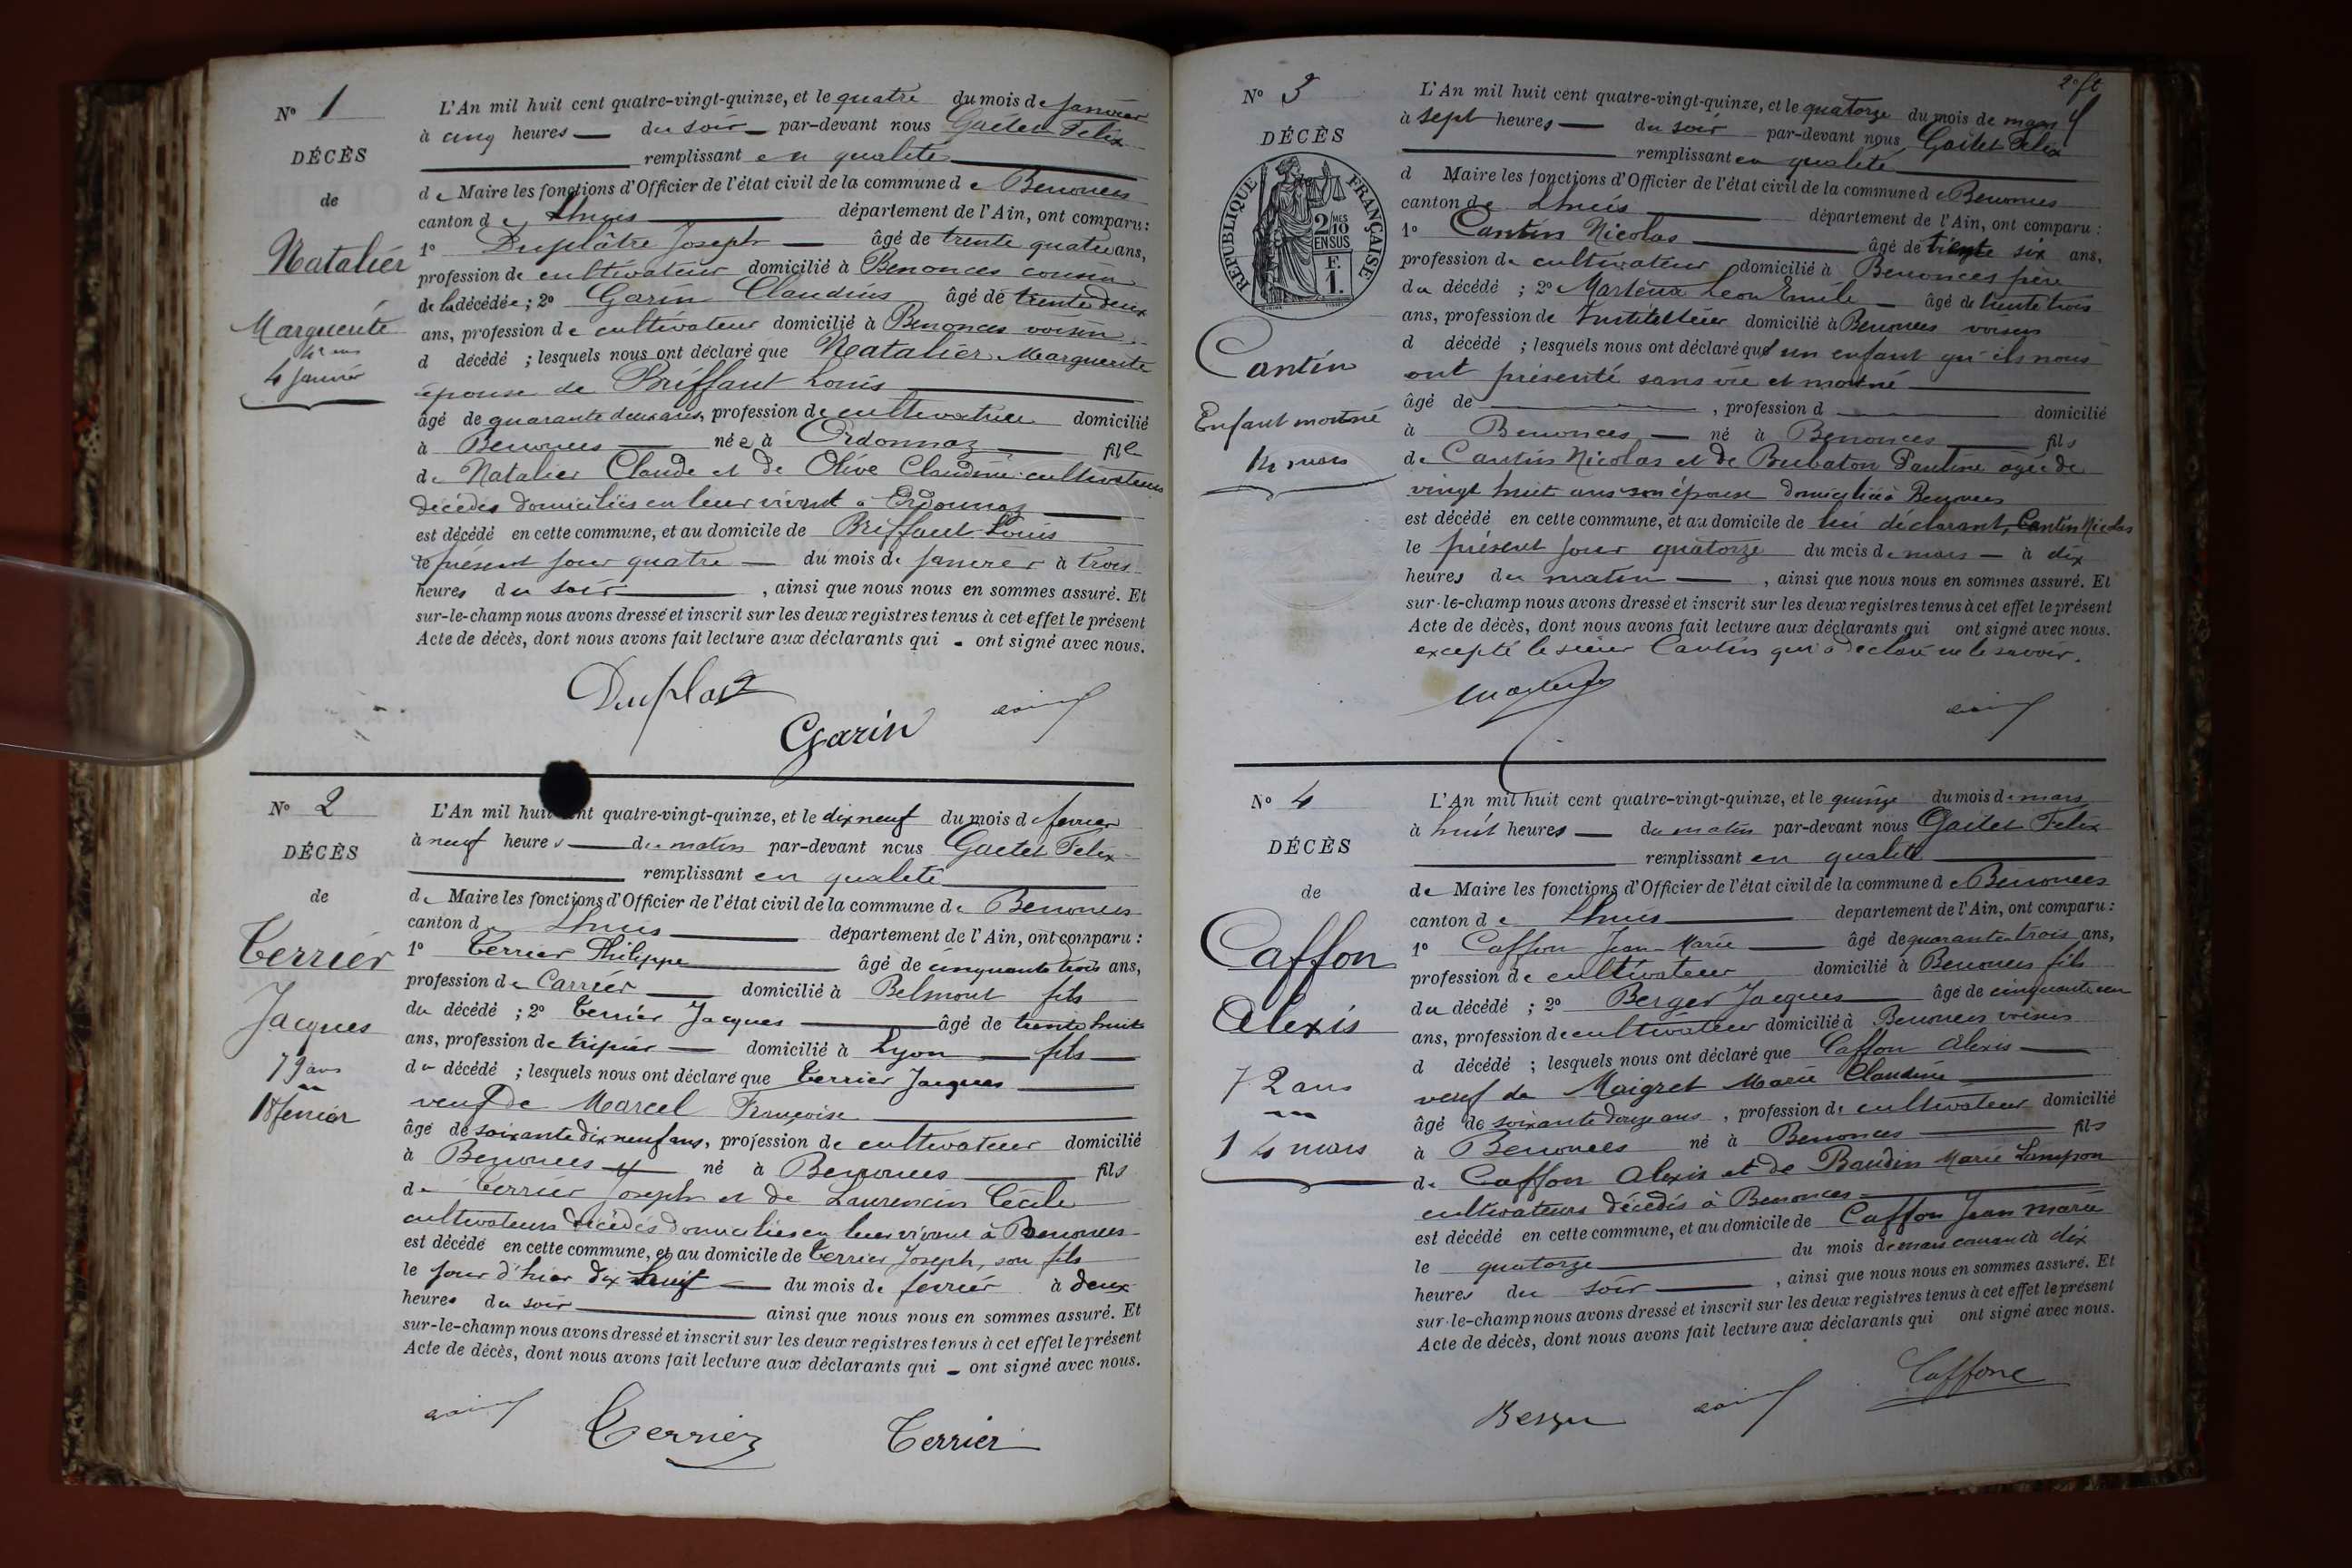 N° 1
DÉCÈS
de
Natalier
Marguerite
42 ans
4 Janvier
L'An mil huit cent quatre-vingt-quinze, et le quatre du mois de Janvier
à cinq heures du soir par-devant nous Gaitet Felix
remplissant en qualité
de Maire les fonctions d'Officier de l'état civil de la commune de Benonces
canton de Lhuis département de l'Ain, ont comparu :
1° Duplâtre Joseph âgé de trente quatre ans,
profession de cultivateur domicilié à Benonces cousin
de la décédée ; 2° Garin Claudius âgé de trente deux
ans, profession de cultivateur domicilié à Benonces voisin
d décédé ; lesquels nous ont déclaré que Natalier Marguerite
épouse de Briffaut Louis
âgé de quarante deux ans, profession de cultivatrice domicilié
à Benonces née à Ordonnaz fille
de Natalier Claude et de Olive Claudine cultivateurs
décédés domiciliés en leur vivant à Ordonnaz
est décédé en cette commune, et au domicile de Briffaut Louis
le présent jour quatre du mois de Janvier à trois
heures du soir , ainsi que nous nous en sommes assuré. Et
sur-le-champ nous avons dressé et inscrit sur les deux registres tenus à cet effet le présent
Acte de décès, dont nous avons fait lecture aux déclarants qui ont signé avec nous.
Garin
N° 2
DÉCÈS
de
Terrier
Jacques
79 ans
18 fevrier
L'An mil huit cent quatre-vingt-quinze, et le dix neuf du mois de fevrier
à neuf heures du matin par-devant nous Gaitet Felix
remplissant en qualité
de Maire les fonctions d'Officier de l'état civil de la commune de Benonces
canton de Lhuis département de l'Ain, ont comparu :
1° Terrier Philippe âgé de cinquante trois ans,
profession de Carrier domicilié à Belmont fils
du décédé ; 2° Terrier Jacques âgé de trente huit
ans, profession de tripier domicilié à Lyon fils
du décédé ; lesquels nous ont déclaré que Terrier Jacques
veuf de Marcel Françoise
âgé de soixante dix neuf ans, profession de cultivateur domicilié
à Benonces né à Benonces fils
de Terrier Joseph et de Laurencin Cécile
cultivateurs décédés domiciliés en leur vivant à Benonces
est décédé en cette commune, et au domicile de Terrier Joseph, son fils
le jour d'hier dix huit du mois de fevrier à deux
heures du soir ainsi que nous nous en sommes assuré. Et
sur-le-champ nous avons dressé et inscrit sur les deux registres tenus à cet effet le présent
Acte de décès, dont nous avons fait lecture aux déclarants qui ont signé avec nous.
Terrier Terrier
N° 3
DÉCÈS
REPUBLIQUE FRANÇAISE
2/10 MES
EN SUS
F.
1.
Cantin
Enfant mort né
14 mars
2e ft
L'An mil huit cent quatre-vingt-quinze, et le quatorze du mois de mars
à sept heures du soir par-devant nous Gaitet Felix
remplissant en qualité
d Maire les fonctions d'Officier de l'état civil de la commune de Benonces
canton de Lhuis département de l'Ain, ont comparu :
1° Cantin Nicolas âgé de trente six ans,
profession de cultivateur domicilié à Benonces père
du décédé ; 2° Léon Emile âgé de trente trois
ans, profession de Instituteur domicilié à Benonces voisin
d décédé ; lesquels nous ont déclaré que un enfant qu'ils nous
ont présenté sans vie et mort né
âgé de , profession d domicilié
à Benonces né à Benonces fils
de Cantin Nicolas et de Bubaton Pauline agée de
vingt huit ans son épouse domiciliée à Benonces
est décédé en cette commune, et au domicile de lui déclarant, Cantin Nicolas
le présent jour quatorze du mois de mars à dix
heures du matin , ainsi que nous nous en sommes assuré. Et
sur-le-champ nous avons dressé et inscrit sur les deux registres tenus à cet effet le présent
Acte de décès, dont nous avons fait lecture aux déclarants qui ont signé avec nous.
excepté le sieur Cantin qui a déclaré ne le savoir.
N° 4
DÉCÈS
de
Caffon
Alexis
72 ans
14 mars
L'An mil huit cent quatre-vingt-quinze, et le quinze du mois de mars
à huit heures du matin par-devant nous Gaitet Felix
remplissant en qualité
de Maire les fonctions d'Officier de l'état civil de la commune de Benonces
canton de Lhuis département de l'Ain, ont comparu :
1° Caffon Jean-Marie âgé de quarante trois ans,
profession de cultivateur domicilié à Benonces fils
du décédé ; 2° Berger Jacques âgé de cinquante un
ans, profession de cultivateur domicilié à Benonces voisin
d décédé ; lesquels nous ont déclaré que Caffon Alexis
veuf de Maigret Marie Claudine
âgé de soixante douze ans , profession de cultivateur domicilié
à Benonces né à Benonces fils
de Caffon Alexis et de Baudin Marie Lampon
cultivateurs décédés à Benonces
est décédé en cette commune, et au domicile de Caffon Jean Marie
le quatorze du mois de mars courant à dix
heures du soir , ainsi que nous nous en sommes assuré. Et
sur-le-champ nous avons dressé et inscrit sur les deux registres tenus à cet effet le présent
Acte de décès, dont nous avons fait lecture aux déclarants qui ont signé avec nous.
Caffon
Berger